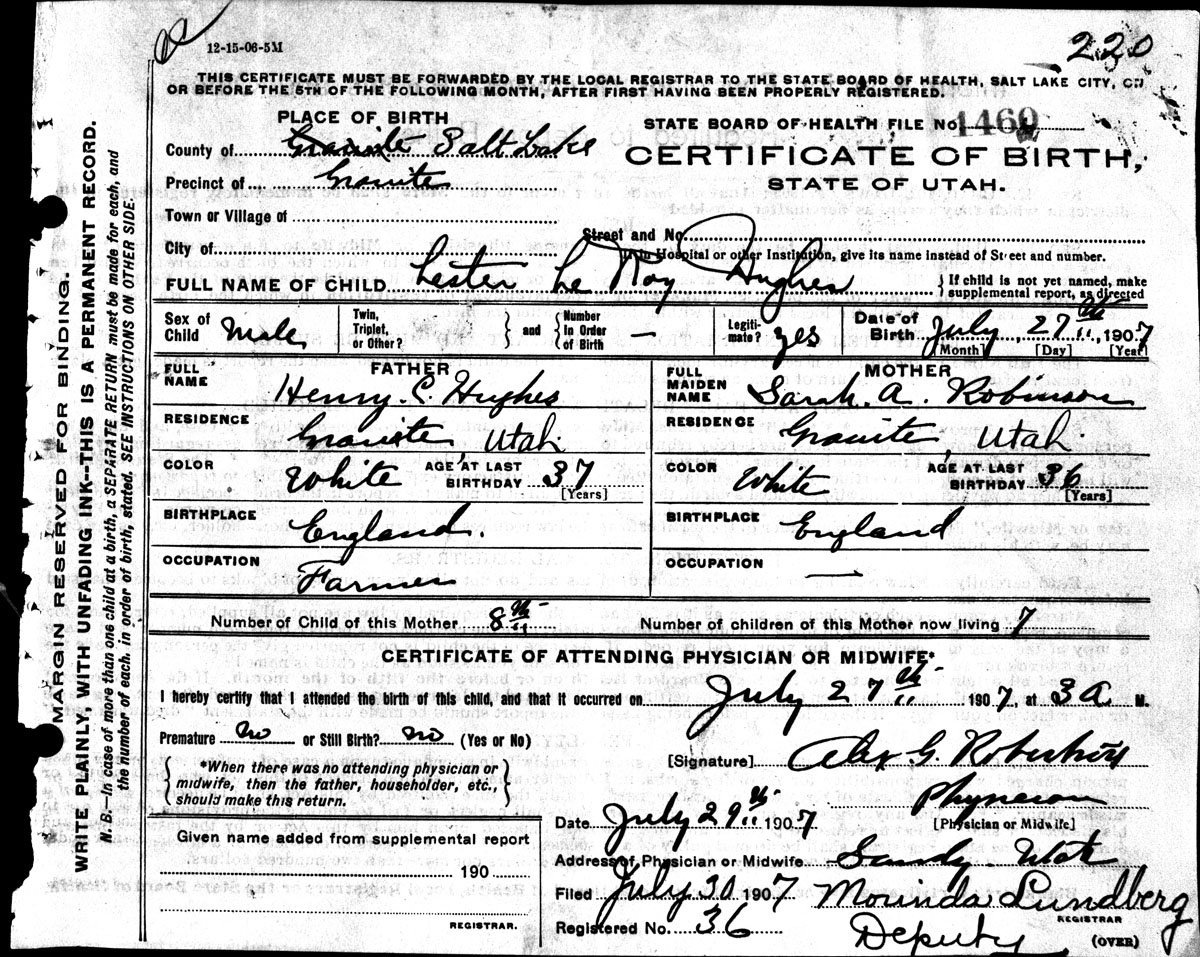 12-15-06-5M
220
THIS CERTIFICATE MUST BE FORWARDED BY THE LOCAL REGISTRAR TO THE STATE BOARD OF HEALTH, SALT LAKE CITY, ON
OR BEFORE THE 5TH OF THE FOLLOWING MONTH, AFTER FIRST HAVING BEEN PROPERLY REGISTERED.
PLACE OF BIRTH
STATE BOARD OF HEALTH FILE No. 1460
County of Granite Salt Lake
CERTIFICATE OF BIRTH,
Precinct of Granite
STATE OF UTAH.
Town or Village of
Street and No.
City of
If in Hospital or other Institution, give its name instead of Street and number.
FULL NAME OF CHILD Lester Le Roy Hughes
If child is not yet named, make
supplemental report, as directed
Sex of Child Male
Twin, Triplet, or Other?
and Number in Order of Birth —
Legiti-mate? yes
Date of Birth July, 27th, 1907
[Month] [Day] [Year]
FATHER
FULL NAME Henry. C. Hughes
RESIDENCE Granite, Utah
COLOR White AGE AT LAST BIRTHDAY 37
[Years]
BIRTHPLACE England.
OCCUPATION Farmer
MOTHER
FULL MAIDEN NAME Sarah. A. Robinson
RESIDENCE Granite, Utah.
COLOR White AGE AT LAST BIRTHDAY 36
[Years]
BIRTHPLACE England
OCCUPATION —
Number of Child of this Mother 8th Number of children of this Mother now living 7
CERTIFICATE OF ATTENDING PHYSICIAN OR MIDWIFE*
I hereby certify that I attended the birth of this child, and that it occurred on July 27th 1907, at 3 A M.
Premature No or Still Birth? No (Yes or No)
[Signature] Alex G. Robertson
*When there was no attending physician or
midwife, then the father, householder, etc.,
should make this return.
Physician
Date July 29th 1907 [Physician or Midwife]
Given name added from supplemental report
Address of Physician or Midwife Sandy Utah
190
Filed July 30 1907 Morinda Lundberg
REGISTRAR
Registered No. 36 Deputy
REGISTRAR.
(OVER)
MARGIN RESERVED FOR BINDING.
WRITE PLAINLY, WITH UNFADING INK—THIS IS A PERMANENT RECORD.
N. B.—In case of more than one child at a birth, a SEPARATE RETURN must be made for each, and
the number of each, in order of birth, stated. SEE INSTRUCTIONS ON OTHER SIDE.